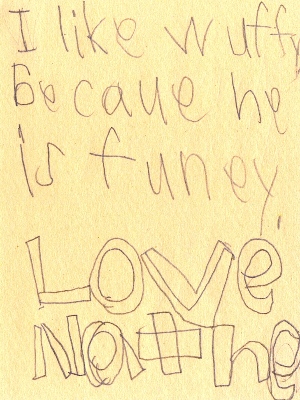 I like wuffy
becaue he
is funey.
LOVE
Nathe